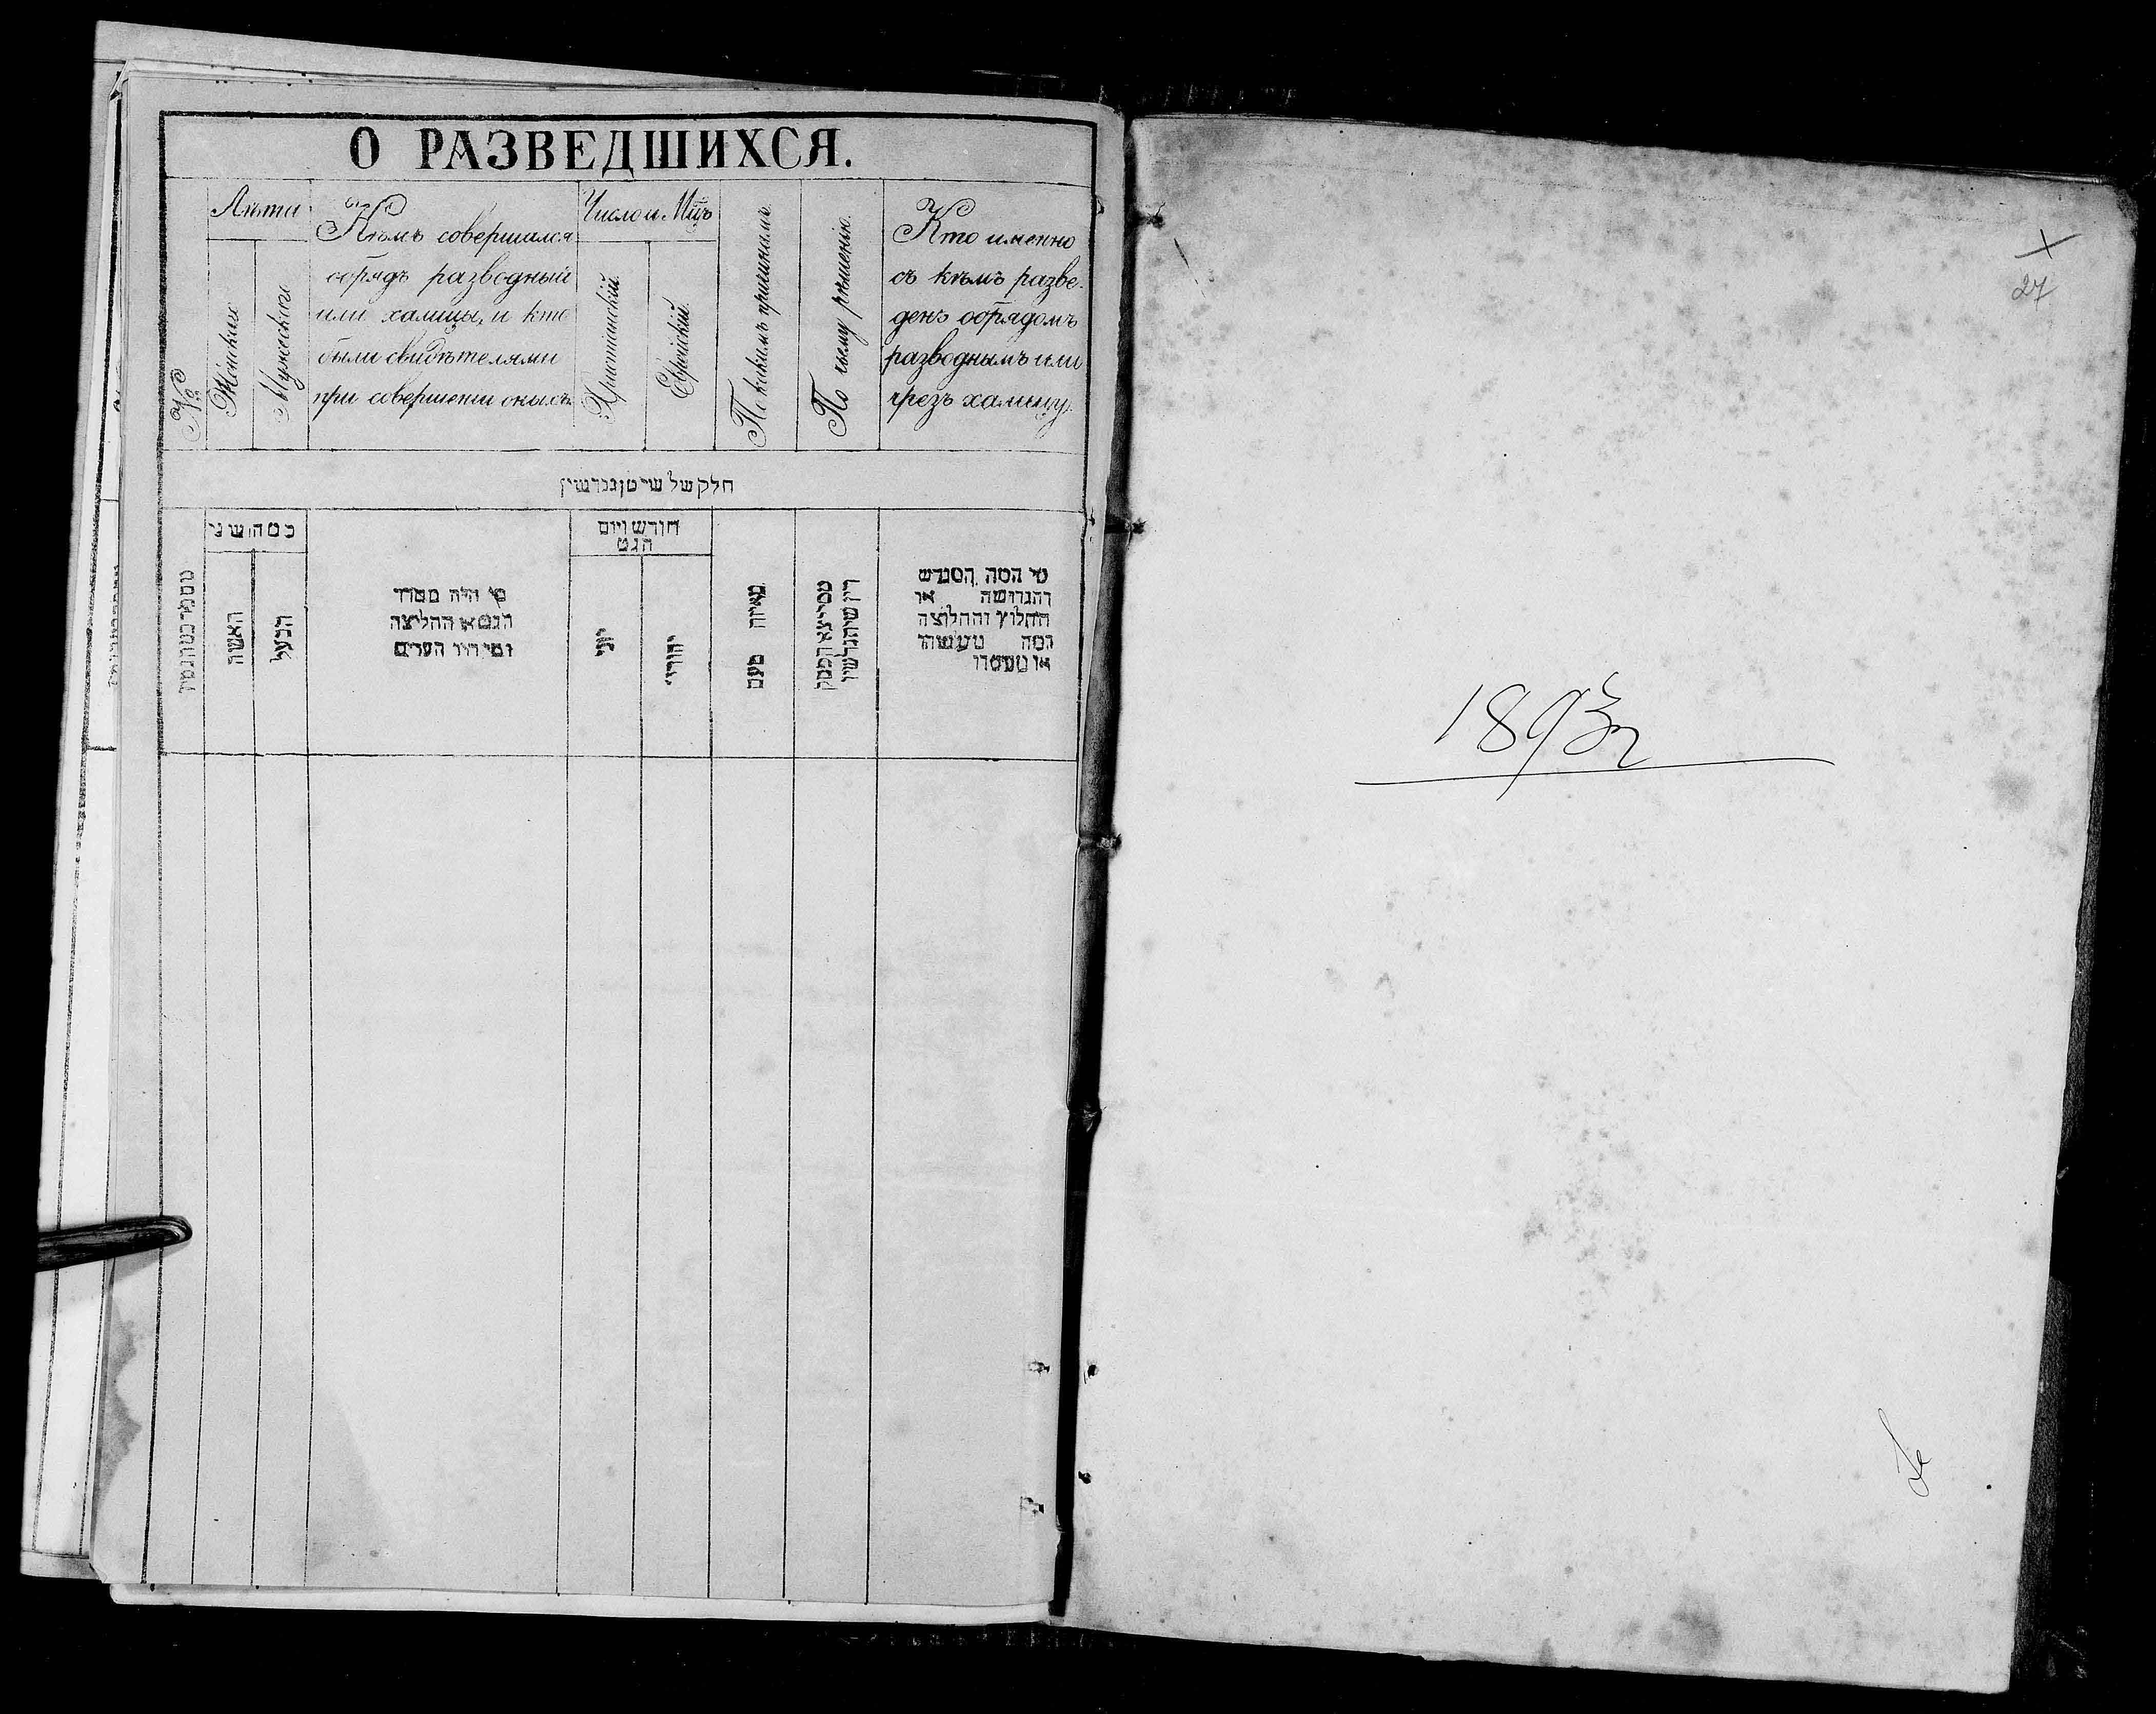 О РАЗВЕДШИХСЯ.
№
Лѣта
Женскаго
Мужескаго
Кѣмъ совершался
обрядъ разводный
или халицы, и кто
были свидѣтелями
при совершеніи оныхъ
Число и Мцъ
Христіанскій
Еврейскій.
По какимъ причинамъ.
По чьему рѣшенію.
Кто именно
съ кѣмъ разве-
денъ обрядомъ
разводнымъ или
чрезъ халицу.
חלק של
האשה
הבעל
מי היה מסדר
הגט או החליצה
ומי היו העדים
חודש ויום
הגט
יוני
יהודי
מאיזה טעם
מי המה המגרש
והגרושה או
החלוץ והחלוצה
ומה מעשהו
או מעמדו
27
1893 г